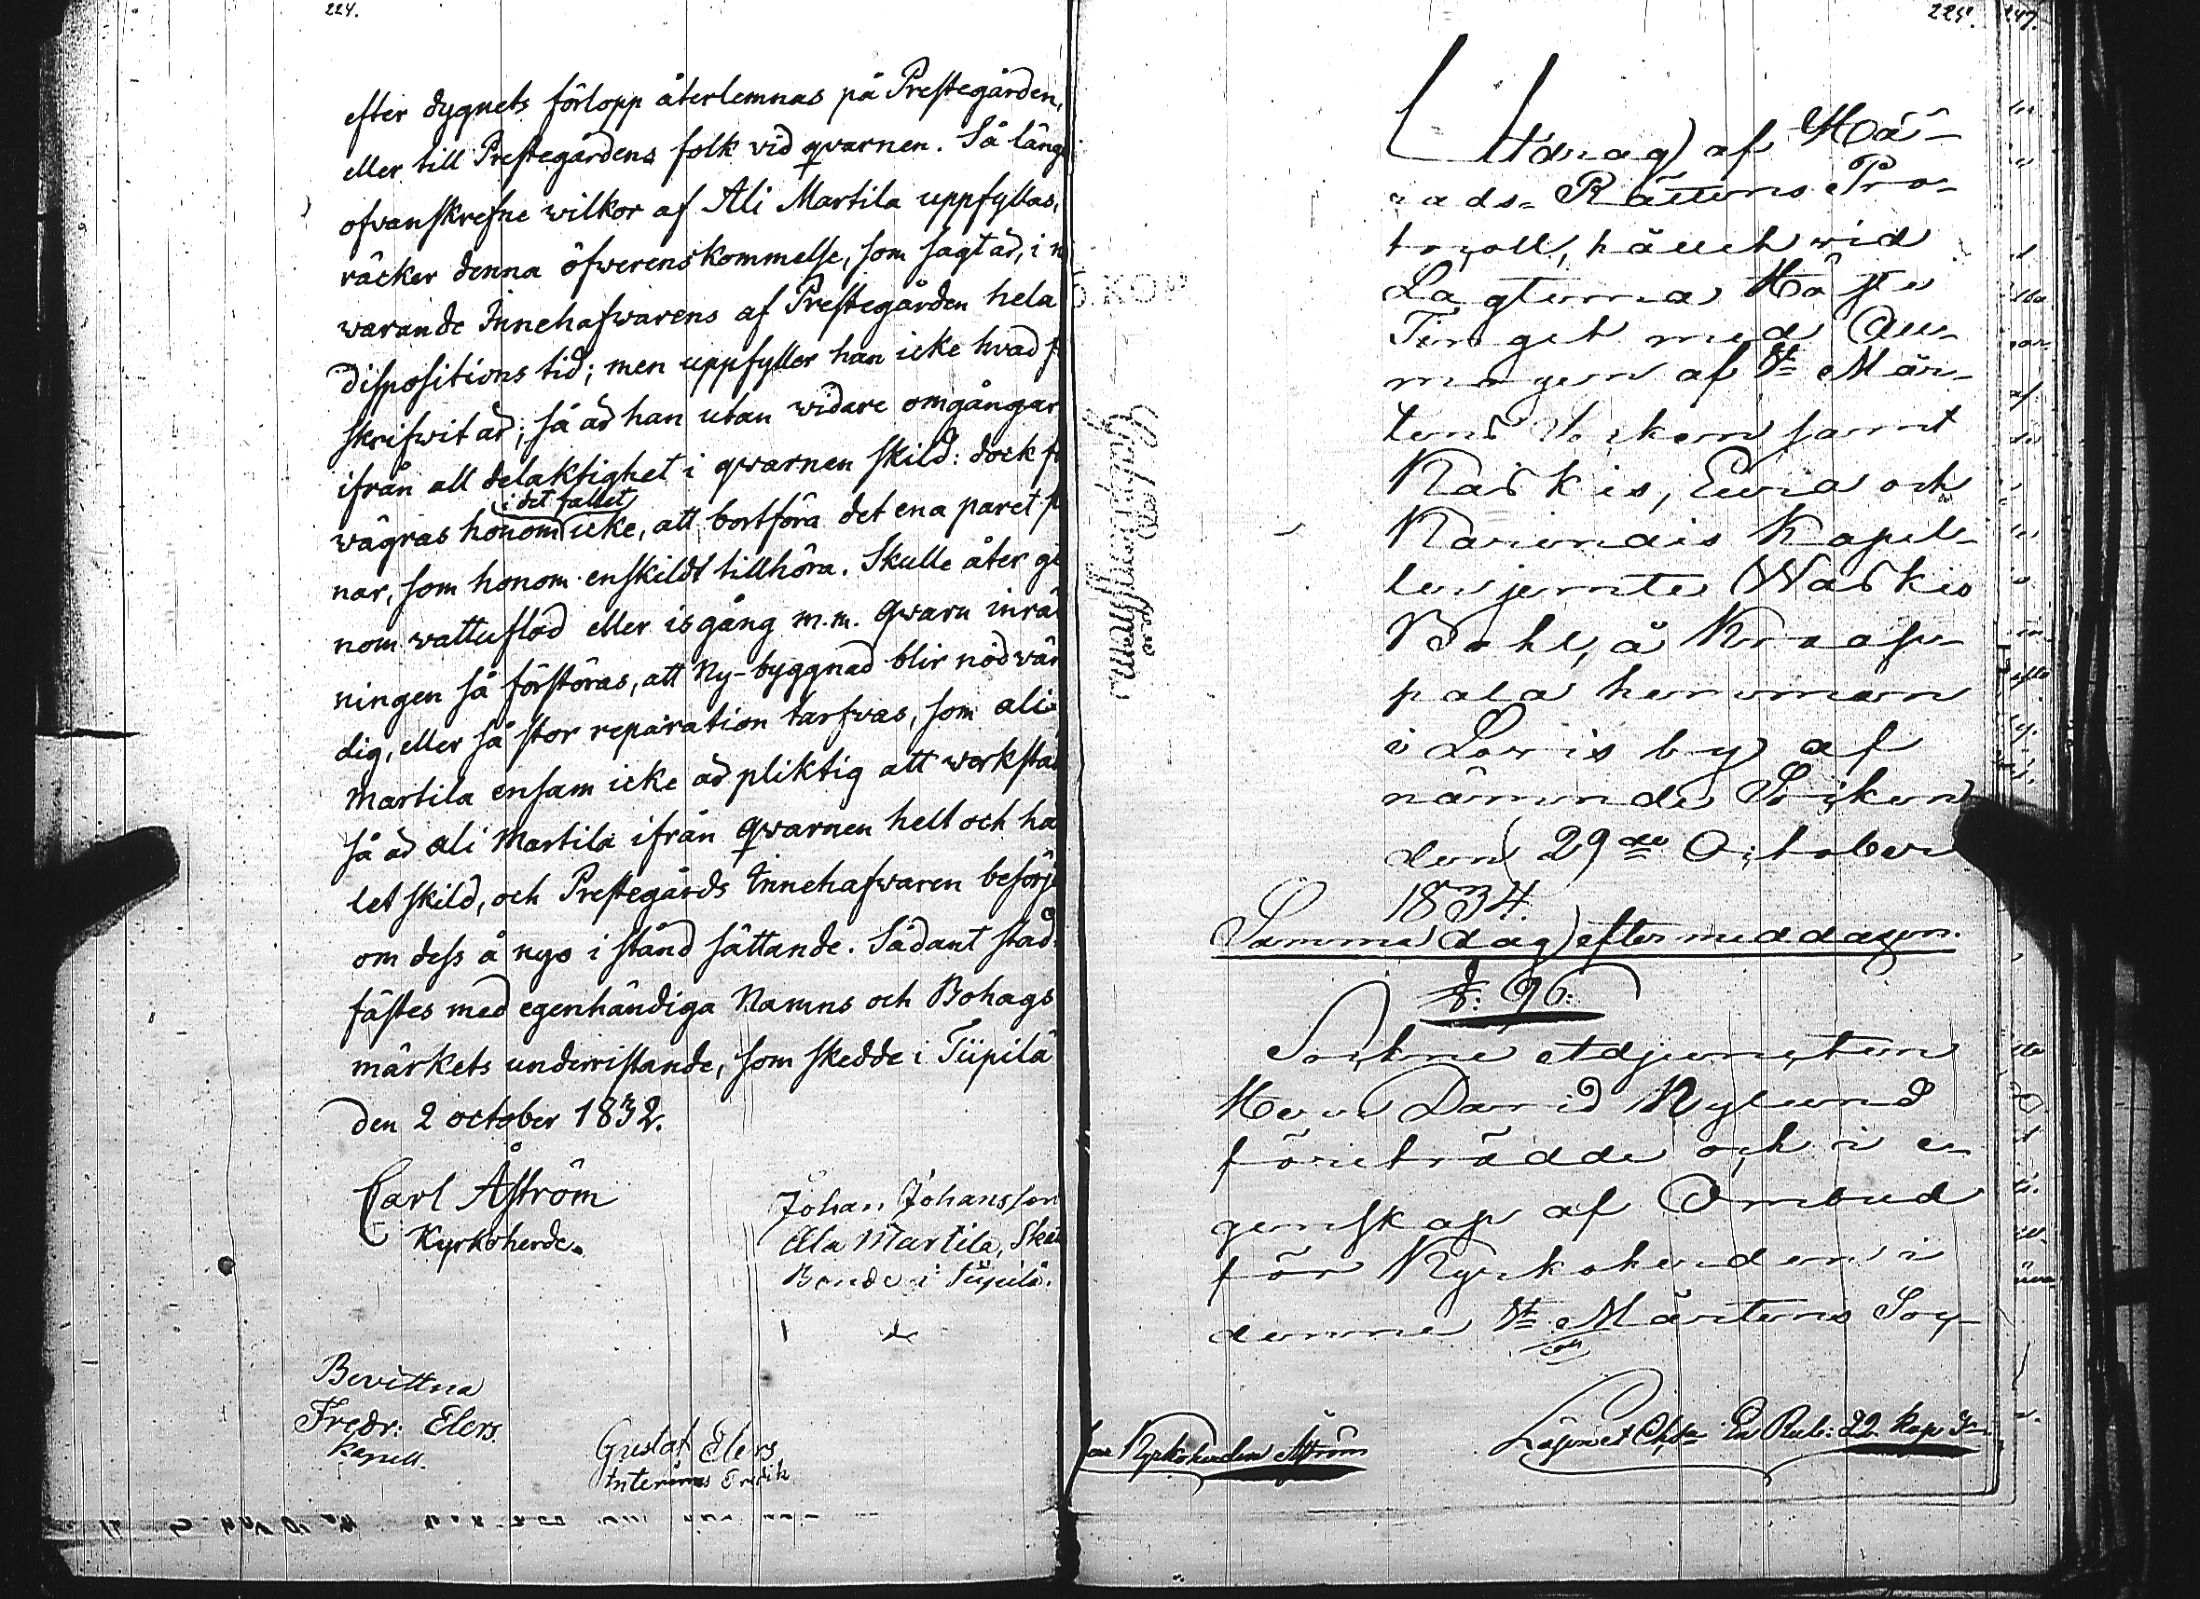 224.
efter dygnets förlopp återlemnas på Prestegården,
eller till Prestegårdens folk vid qvarnen. Så läng
ofvanskrefne wilkor af Ali Martila uppfyllas,
räcker denna öfwerenskommelse, som sagt är, i n
warande Innehafwarens af Prestegården hela
dispositions tid; men uppfyller han icke hvad f
skrifwit är; så är han utan widare omgångar
ifrån all delaktighet i qwarnen skild: dock f
i det fallet
wägras honom icke, att bortföra det ena paret
nar, som honom enskildt tillhöra. Skulle åter ge
nom wattuflöd eller isgång m.m. qwarn inrät
ningen så förstöras, att Ny-byggnad blir nödvän
dig, eller så stor reparation tarfwas, som ali
Martila ensam icke är pliktig att werkstäl
så är Ali Martila ifrån qwarnen helt och hål
let skild, och Prestegårds Innehafwaren besörje
om dess å nyo i stånd sättande. Sådant stad-
fästes med egenhändiga Namns och Bohags
märkets underristande, som skedde i Tiipilä
den 2 october 1832.
Carl Åström
Kyrkoherde.
Johan Johansson
Ala Martila, Skat
Bonde i Tiipilä.
Bevittna
Fredr: Elers.
Kapell.
Gustaf Elers
Interims Predik
225.
247.
Utdrag af Hä-
rads-Rättens Pro-
tocoll, hållet wid
Lagtima Höste
Tinget med All-
mogen af St Mår-
tens Socken samt
Koskis, Eura och
Karinais Kapel-
ler jemte Waskio
Bohl, å Knaap-
pala hemman
i Lauris by af
nämnde Socken
den 29de October
1834.
Samma dag eftermiddagen.
§: 96:
Sockne Adjuncten
Herr David Nylund
företrädde och i e-
genskap af Ombud
för Kyrkoherden i
denne St Mårtens Soc-
Kyrkoherden Åström
Löpnet Cha En Rub: 22 kop Sr